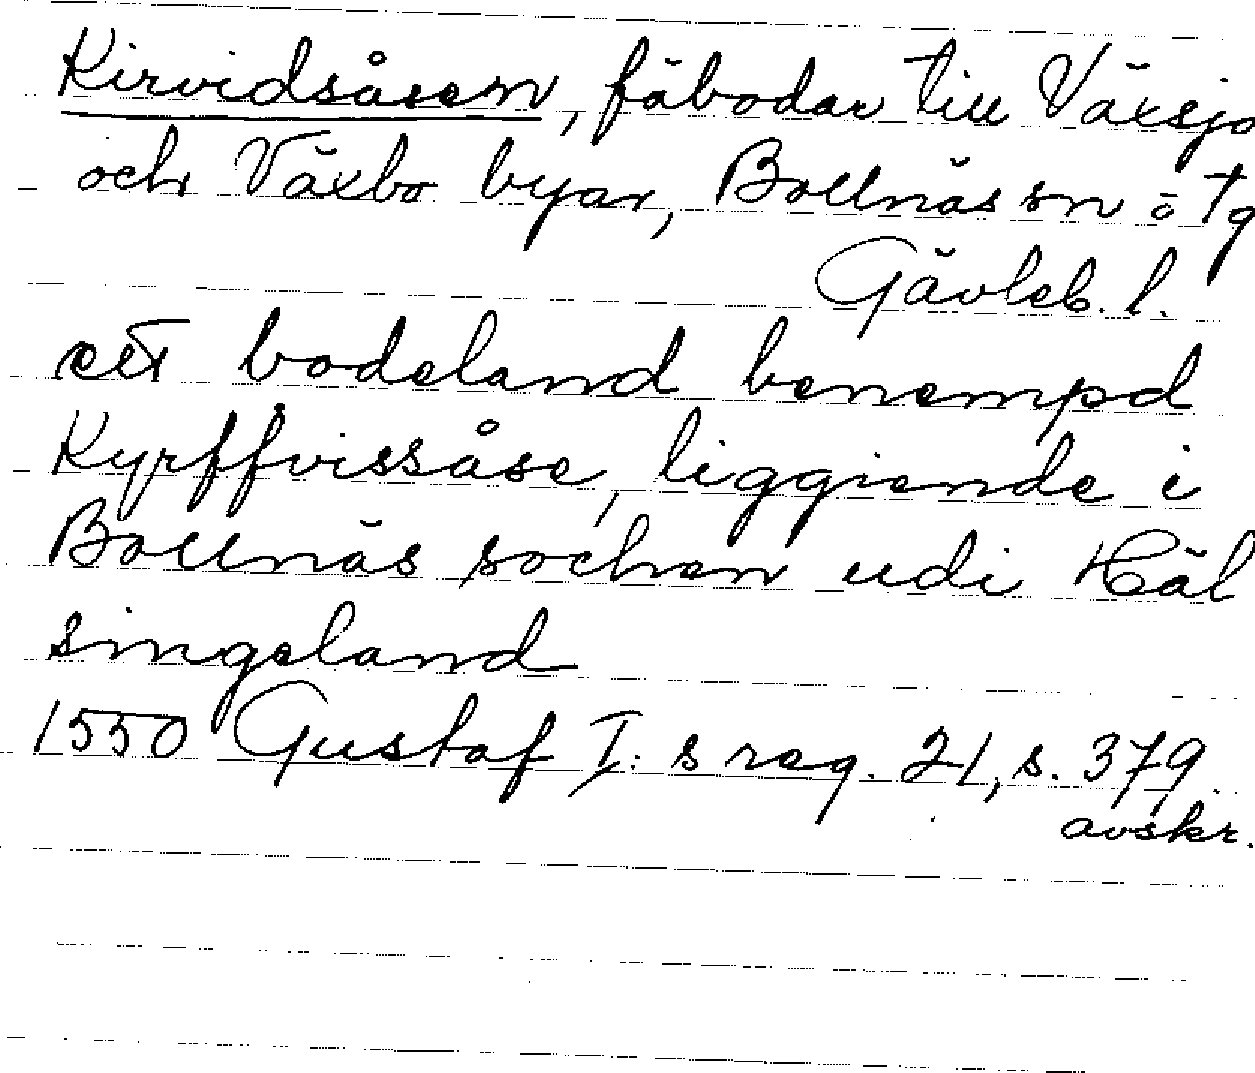 Kirvidsåsen, fäbodar till Växsjö
och Växbo byar, Bollnäs sn ö tg
Gävleb. l.
ett bodeland benempd
Kyrffvissåse, liggiende i
Bollnäs sochen udi Häl
singeland
1550 Gustaf I:s reg. 21, s. 379
avskr.